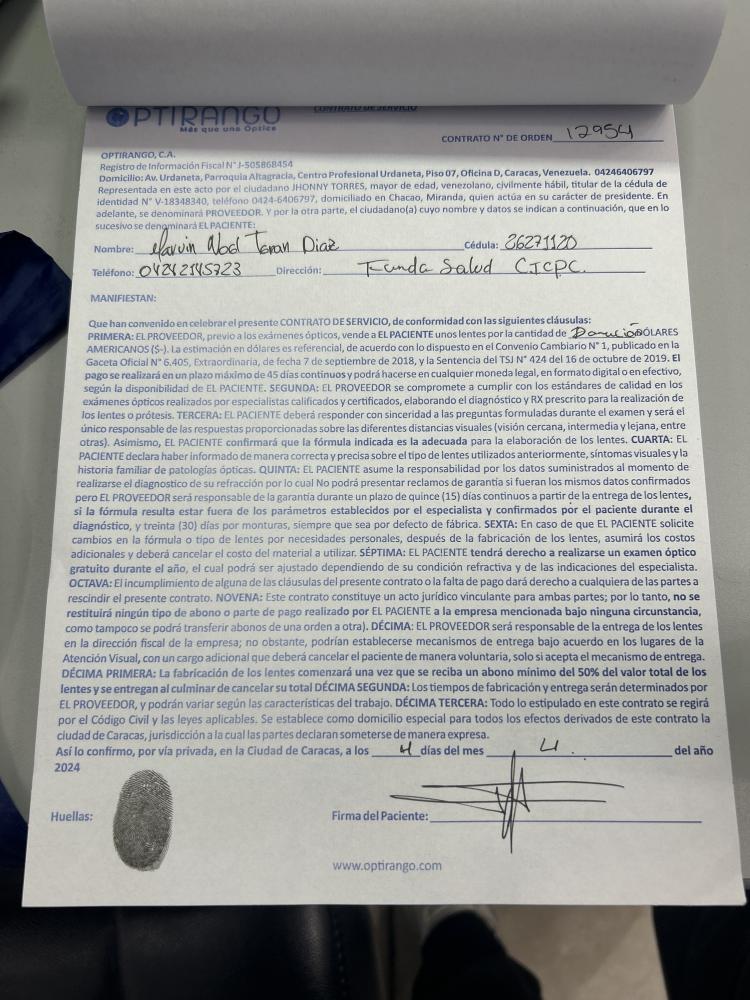 OPTIRANGO
Más que una Óptica
CONTRATO DE SERVICIO
CONTRATO N° DE ORDEN 12954
OPTIRANGO, C.A.
Registro de Información Fiscal N° J-505868454
Domicilio: Av. Urdaneta, Parroquia Altagracia, Centro Profesional Urdaneta, Piso 07, Oficina D, Caracas, Venezuela. 04246406797
Representada en este acto por el ciudadano JHONNY TORRES, mayor de edad, venezolano, civilmente hábil, titular de la cédula de
identidad N° V-18348340, teléfono 0424-6406797, domiciliado en Chacao, Miranda, quien actúa en su carácter de presidente. En
adelante, se denominará PROVEEDOR. Y por la otra parte, el ciudadano(a) cuyo nombre y datos se indican a continuación, que en lo
sucesivo se denominará EL PACIENTE:
Nombre: Marvin Abel Teran Diaz Cédula: 26271120
Teléfono: 04242145723 Dirección: Funda Salud CICPC.
MANIFIESTAN:
Que han convenido en celebrar el presente CONTRATO DE SERVICIO, de conformidad con las siguientes cláusulas:
PRIMERA: EL PROVEEDOR, previo a los exámenes ópticos, vende a EL PACIENTE unos lentes por la cantidad de Donación DÓLARES
AMERICANOS ($-). La estimación en dólares es referencial, de acuerdo con lo dispuesto en el Convenio Cambiario N° 1, publicado en la
Gaceta Oficial N° 6.405, Extraordinaria, de fecha 7 de septiembre de 2018, y la Sentencia del TSJ N° 424 del 16 de octubre de 2019. El
pago se realizará en un plazo máximo de 45 días continuos y podrá hacerse en cualquier moneda legal, en formato digital o en efectivo,
según la disponibilidad de EL PACIENTE. SEGUNDA: EL PROVEEDOR se compromete a cumplir con los estándares de calidad en los
exámenes ópticos realizados por especialistas calificados y certificados, elaborando el diagnóstico y RX prescrito para la realización de
los lentes o prótesis. TERCERA: EL PACIENTE deberá responder con sinceridad a las preguntas formuladas durante el examen y será el
único responsable de las respuestas proporcionadas sobre las diferentes distancias visuales (visión cercana, intermedia y lejana, entre
otras). Asimismo, EL PACIENTE confirmará que la fórmula indicada es la adecuada para la elaboración de los lentes. CUARTA: EL
PACIENTE declara haber informado de manera correcta y precisa sobre el tipo de lentes utilizados anteriormente, síntomas visuales y la
historia familiar de patologías ópticas. QUINTA: EL PACIENTE asume la responsabilidad por los datos suministrados al momento de
realizarse el diagnostico de su refracción por lo cual No podrá presentar reclamos de garantía si fueran los mismos datos confirmados
pero EL PROVEEDOR será responsable de la garantía durante un plazo de quince (15) días continuos a partir de la entrega de los lentes,
si la fórmula resulta estar fuera de los parámetros establecidos por el especialista y confirmados por el paciente durante el
diagnóstico, y treinta (30) días por monturas, siempre que sea por defecto de fábrica. SEXTA: En caso de que EL PACIENTE solicite
cambios en la fórmula o tipo de lentes por necesidades personales, después de la fabricación de los lentes, asumirá los costos
adicionales y deberá cancelar el costo del material a utilizar. SÉPTIMA: EL PACIENTE tendrá derecho a realizarse un examen óptico
gratuito durante el año, el cual podrá ser ajustado dependiendo de su condición refractiva y de las indicaciones del especialista.
OCTAVA: El incumplimiento de alguna de las cláusulas del presente contrato o la falta de pago dará derecho a cualquiera de las partes a
rescindir el presente contrato. NOVENA: Este contrato constituye un acto jurídico vinculante para ambas partes; por lo tanto, no se
restituirá ningún tipo de abono o parte de pago realizado por EL PACIENTE a la empresa mencionada bajo ninguna circunstancia,
como tampoco se podrá transferir abonos de una orden a otra). DÉCIMA: EL PROVEEDOR será responsable de la entrega de los lentes
en la dirección fiscal de la empresa; no obstante, podrían establecerse mecanismos de entrega bajo acuerdo en los lugares de la
Atención Visual, con un cargo adicional que deberá cancelar el paciente de manera voluntaria, solo si acepta el mecanismo de entrega.
DÉCIMA PRIMERA: La fabricación de los lentes comenzará una vez que se reciba un abono mínimo del 50% del valor total de los
lentes y se entregan al culminar de cancelar su total DÉCIMA SEGUNDA: Los tiempos de fabricación y entrega serán determinados por
EL PROVEEDOR, y podrán variar según las características del trabajo. DÉCIMA TERCERA: Todo lo estipulado en este contrato se regirá
por el Código Civil y las leyes aplicables. Se establece como domicilio especial para todos los efectos derivados de este contrato la
ciudad de Caracas, jurisdicción a la cual las partes declaran someterse de manera expresa.
Así lo confirmo, por vía privada, en la Ciudad de Caracas, a los 4 días del mes 4. del año
2024
Huellas: Firma del Paciente:
www.optirango.com